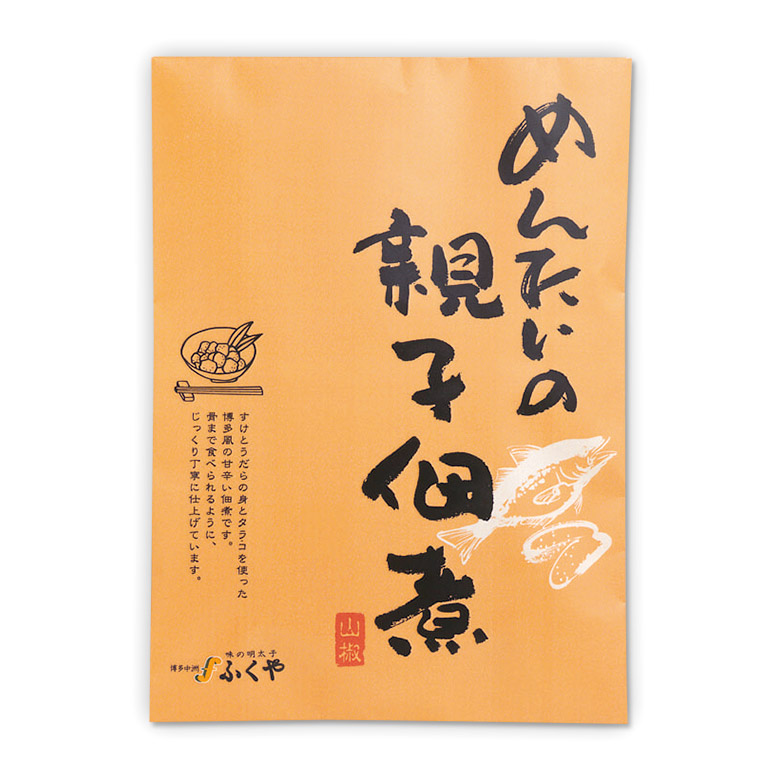 めんたいの
親子佃煮
山椒
すけとうだらの身とタラコを使った
博多風の甘辛い佃煮です。
骨まで食べられるように、
じっくり丁寧に仕上げています。
味の明太子
博多中洲 ふくや